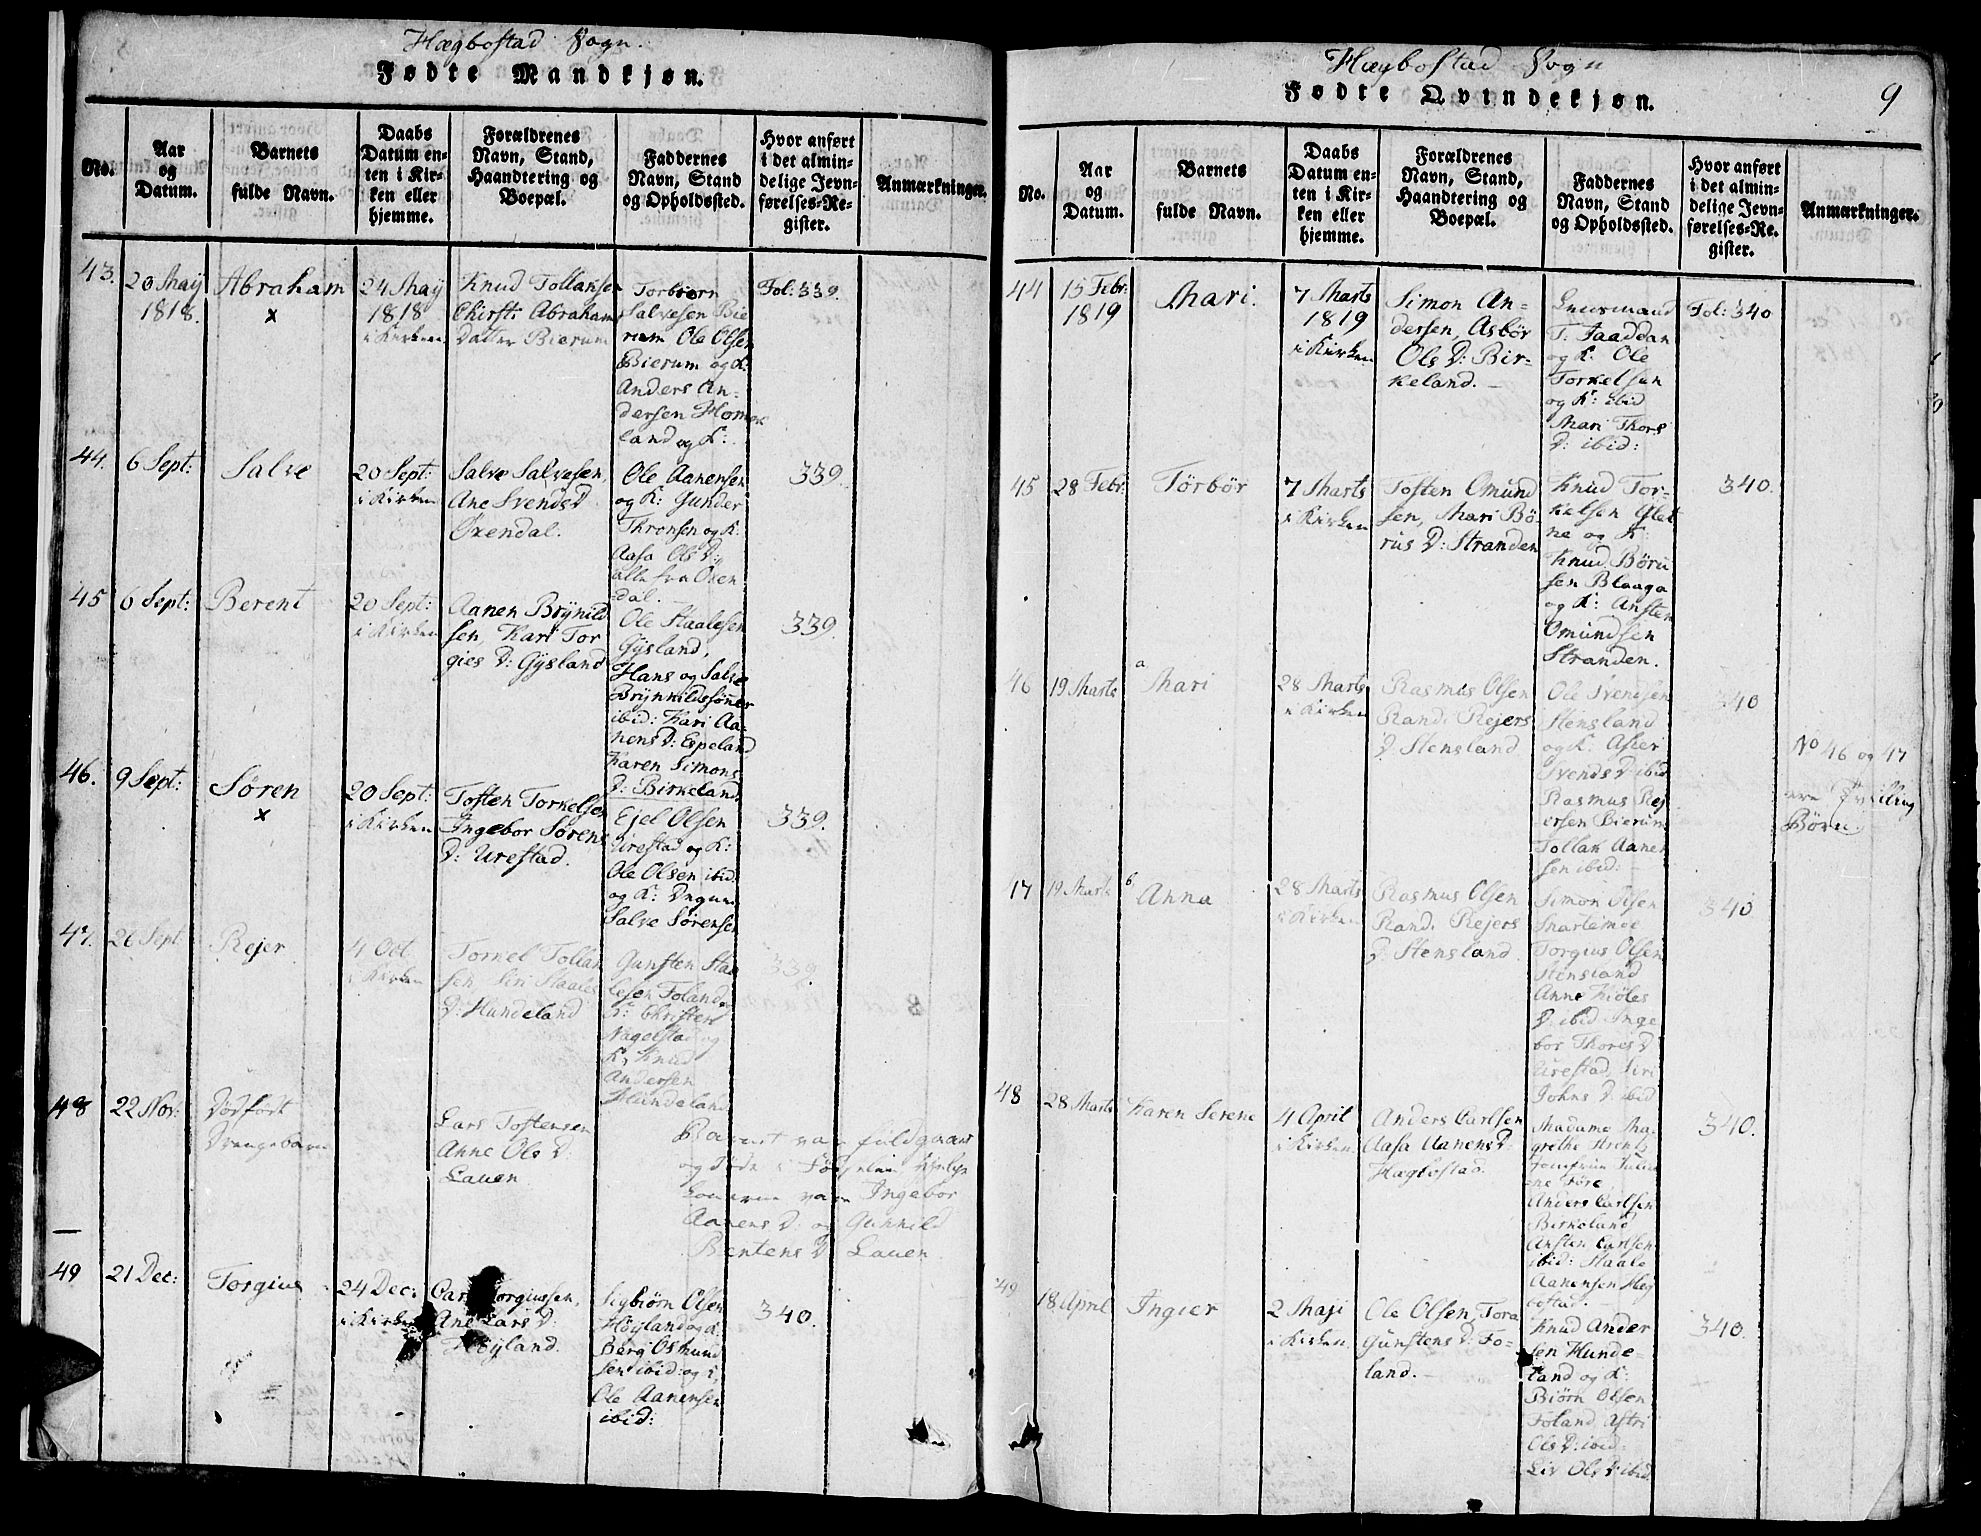 Hægbostad Sogn.
Fødte Mandkjøn.
No.
Aar
og
Datum.
Barnets
fulde Navn.
Daabs
Datum en-
ten i Kir-
ken eller
hjemme.
Forældrenes
Navn, Stand,
Haandtering og
Boepæl.
Faddernes
Navn, Stand
og Opholdssted.
Hvor anført
i det almin-
delige Jevn-
førelses-Re-
gister.
Anmærkninger.
43.
20 May
1818.
Abraham
×
24 May
1818
i Kirken
Knud Tollaksen
Chirsti Abrahams
Datter Bierum
Torbiorn
Salvesen Bie
rum Ole Olsen
Bierum og K:
Anders An-
dersen Homme
land og K:
Fol: 339.
44.
6 Sept:
Salve
20 Sept:
i Kirken
Salve Salvesen,
Ane Svends D
Øxendal.
Ole Aanensen
og K: Gunder
Thronsen og K:
Aasa Ols D:
alle fra Øxen
dal.
339.
45
6 Sept:
Berent
20 Sept:
i Kirken
Aanen Brynild
sen, Kari Tor
gies D: Gysland
Ole Staalesen
Gysland,
Hans og Salve
Brynnildssøner
ibid: Kari Aa-
nens D: Espeland
Karen Simons
D: Birkeland.
339.
46.
9 Sept:
Søren
×
20 Sept:
i Kirken
Tosten Torkelsen
Ingebor Sørens
D: Urestad.
Ejel Olsen
Urestad og K:
Ole Olsen ibid:
og K:
Salve Sørensen
339.
47.
26 Sept
Rejer
4 Oct
i Kirken
Torkel Tollak
sen, Siri Staales
D: Hundeland
Gunsten Staa
lesen Foland og
K: Christen
Nagelstad og
K, Knud
Andersen
Hundeland
339
48
22 Nov:
Dødfødt
Drengebarn
Lars Tostensen
Anne Ols D:
Lauen
Barnet var fuldgaaet
og døde i Fødselen Hjelpe
konerne vare Ingebor
Aanens D: og Gunnild
Bentens D Lauen.
49
21 Dec:
Torgius
24 Dec:
i Kirken
Torgiussen,
Ane Lars D:
Høyland.
Sigbiørn Olsen
Høyland og K
Berg Osmund
sen ibid: og K,
Ole Aanensen
ibid:
340.
Hægbostad Sogn
Fødte Qvindekjøn.
9
No.
Aar
og
Datum.
Barnets
fulde Navn.
Daabs
Datum en-
ten i Kir-
ken eller
hjemme.
Forældrenes
Navn, Stand,
Haandtering og
Boepæl.
Faddernes
Navn, Stand
og Opholdssted.
Hvor anført
i det almin-
delige Jevn-
førelses-Re-
gister.
Anmærkninger.
44
15 Febr:
1819
Mari.
7 Marts
1819
i Kirken
Simon An-
dersen, Asbør
Ols D: Bir-
keland. –
T. Jaaddan
og K: Ole
Torkelsen
og K: ibid
Mari Thors
D: ibid:
Fol: 340
45
28 Febr:
Torbør
7 Marts
i Kirken
Tosten Omund
sen, Mari Bø-
rus D: Stranden
Knud Tor-
kelsen Glet
ne og K:
Knud Børu
sen Blaaga
og K: Ansten
Omundsen
Stranden.
340.
46
19 Marts
a
Mari
28 Marts
i Kirken
Rasmus Olsen
Rand. Rejers
D: Stensland
Ole Svendsen
Stensland
og K: Aster
Svends D ibid
Rasmus Rej
ersen Bierum
Tollak Aanen
sen ibid: –
340
No 46 og 47
ere Tvilling
Børn.
47
19 Marts
b
Anna
28 Marts
i Kirken
Rasmus Olsen
Rand. Rejers
D: Stensland
Simon Olsen
Snartemoe
Torgius Olsen
Stensland
Anne Kiøles
D: ibid Inge
bor Thores D
Urestad, Siri
Johns D: ibid
340
48
28 Marts
Karen Serene
4 April
i Kirken
Anders Carlsen
Aasa Aanens D
Hægbostad.
Madame Ma-
grethe
Jomfrue Julia
ne Føre,
Anders Carlsen
Birkeland
Ansten Carlsen
ibid: Staale
Aanensen Heg
bostad.
340.
49
18 April
Ingier
2 Maji
i Kirken
Ole Olsen, Tora
Gunstens D: Fo-
land. –
Knud Ander
sen Hunde-
land og K:
Biørn Olsen
Foland, Astri
Ols D: ibid:
Liv Ols D ibid
340.